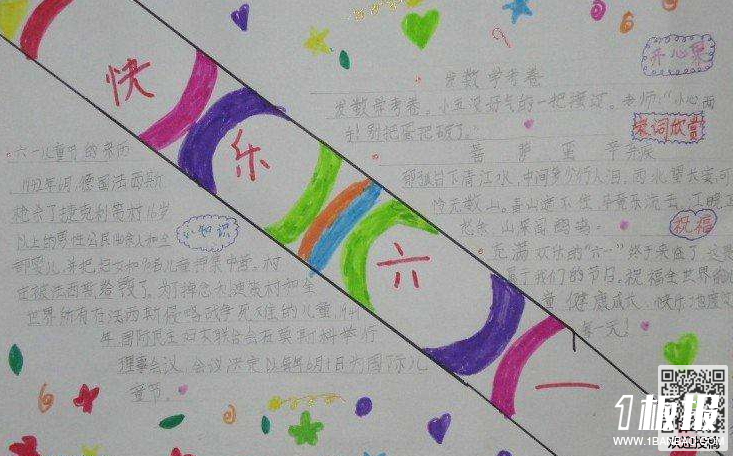 快
乐
六
一
开心果
发数学考卷
发数学考卷，小五没好气的一把接过。老师："小心两
宋词欣赏
菩 萨 蛮 辛弃疾
郁孤台下清江水，中间多少行人泪，西北望长安，可
怜无数山。青山遮不住，毕竟东流去，江晚正
山深闻鹧鸪。
祝福
充满欢乐的"六一"终于来临了，这是
属于我们的节日。祝福全世界的
健康成长，快乐
每一天！
六一儿童节的来历
小知识
1942年6月，德国法西斯
枪杀了捷克利迪村16岁
以上的男性公民140余人和全
部婴儿，并把妇女和90名儿童押
世界所有在法西斯侵略战争死难的儿童，1949
年，国际民主妇女联合会在莫斯科举行
理事会议，会议决定以每年6月1日为国际儿
童节。
1板报
WWW.1BANBAO.COM
欢迎投稿